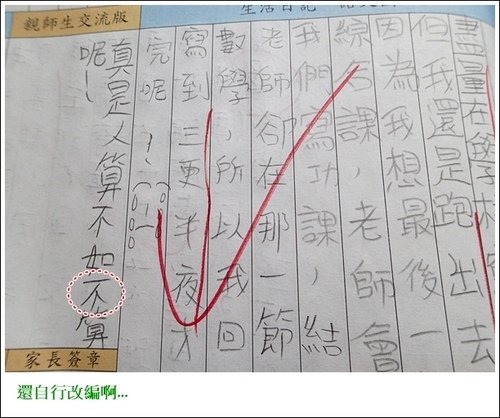 盡量在學校
但我還是跑出去
因為我想最後一
綜合課，老師會
我們寫功課，結
老師卻在那一節
數學，所以我回
寫到三更半夜才
完呢~~
親師生交流版
真是人算不如不算
呢~
家長簽章
還自行改編啊...